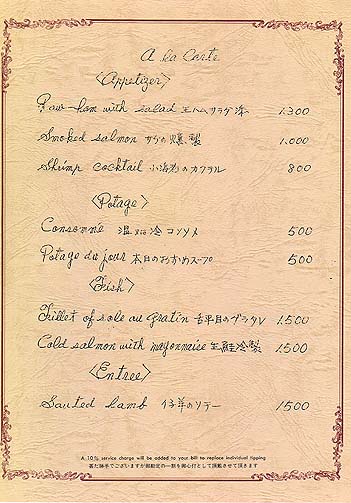 A la Carte
<Appetizer>
Raw ham with salad 生ハムサラダ添 1.300
Smoked salmon サケの燻製 1.000
Shrimp cocktail 小海老のカクテル 800
<Potage>
Consommé 温 冷コンソメ 500
Potage du jour 本日のおすすめスープ 500
<Fish>
Fillet of sole au gratin 舌平目のグラタン 1.500
Cold salmon with mayonnaise 生鮭冷製 1.500
<Entree>
Sauted lamb 仔羊のソテー 1500
A 10% service charge will be added to your bill to replace individual tipping
甚だ勝手でございますが御勘定の一割を御心付として頂戴させて頂きます